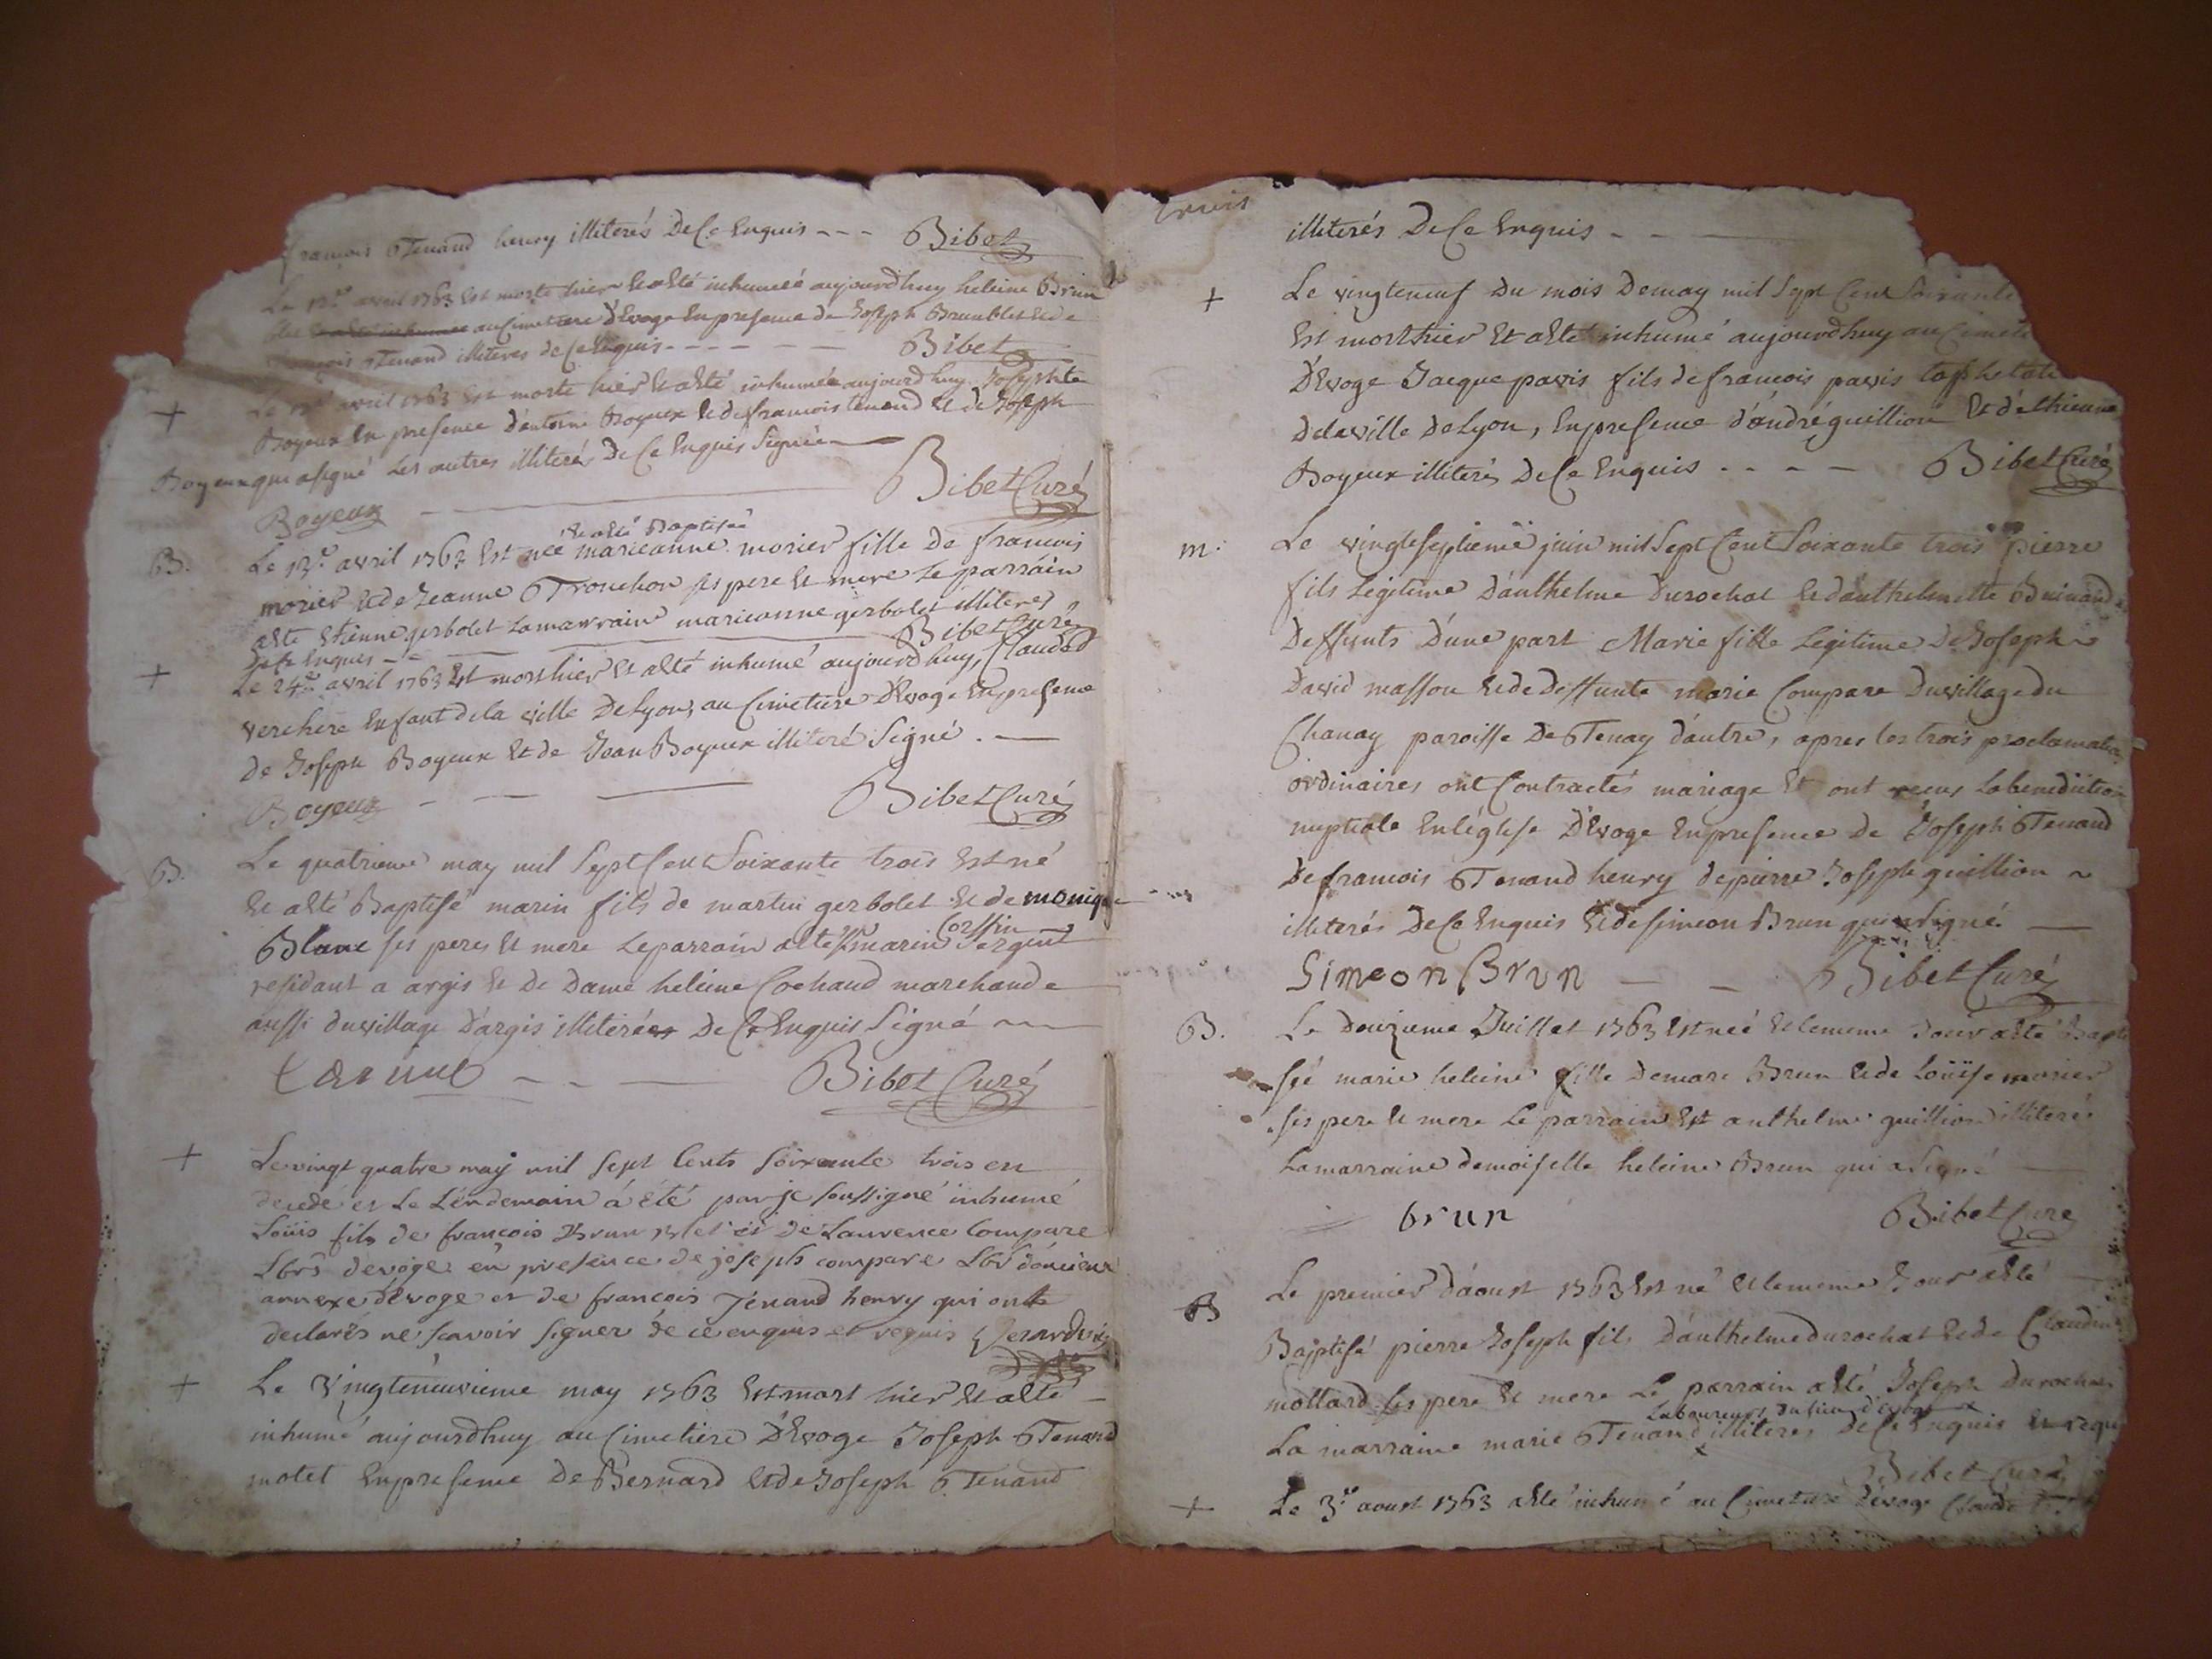 francois Tenand henry illiterés De Ce Enquis --- Bibet
Le 12.e avril 1763 Est morte hier Et a Eté inhumée aujourdhuy heleine Brun
au Cimetiere D'Evoge En presence de Joseph Brun blet Et de
francois Tenand illiteres de Ce Enquis ----- Bibet
+ Le avril 1763 Est morte hier Et a Eté inhumée aujourdhuy Josephte
Boyeux En presence d'antoine Boyeux Et de francois tenand Et de Joseph
Boyeux qui a signé Les autres illiterés De Ce Enquis
Boyeux Bibet Curé
Et a Eté Baptisée
B. Le 12.e avril 1763 Est née marieanne morier fille De francois
morier Et de Jeanne Trouchon ses pere Et mere Le parrain
a Eté Etienne gerbolet La marraine marieanne gerbolet illiteres
De Ce Enquis -- Bibet Curé
+ Le 24.e avril 1763 Est mort hier Et a Eté inhumé aujourdhuy, Claude
verchere Enfant de la ville De Lyon, au Cimetiere D'Evoge En presence
De Joseph Boyeux Et de Jean Boyeux illiteré Signé . —
Boyeux Bibet Curé
B. Le quatrieme may mil Sept Cent Soixante trois Est né
Et a Eté Baptisé marin fils de martin gerbolet Et de monique
Corssin
Blanc ses peres Et mere Le parrain a Eté marin Sergent
residant a argis Et De Dame heleine Cochaud marchande
aussi du village D'argis illiterées De Ce Enquis Signé
Bibet Curé
+ Le vingt quatre may mil sept Cents soixante trois est
decedé et Le Lendemain à été par je soussigné inhumé
Loüis fils de françois Brun Blet et de Laurence Compare
Lbrs devoge en presence de joseph compare Lbr d'oncieux
annexe d'evoge et de françois Jénand henry qui ont
declarés ne scavoir signer de ce enquis et requis
+ Le Vingteneuvieme may 1763 Est mort hier Et a Eté
inhumé aujourdhuy au Cimetiere D'Evoge Joseph Tenand
motet En presence De Bernard Et de Joseph Tenand
trois
illiterés De Ce Enquis
+ Le vingteneuf Du mois De may mil Sept Cent Soixante
Est mort hier Et a Eté inhumé aujourdhuy au Cimetie
D'Evoge Jacque pavis fils de francois pavis
De la ville De Lyon, En presence d'andré guillion Et d'Ethienne
Boyeux illiterés De Ce Enquis ---- Bibet Curé
m. Le vingteseptieme juin mil Sept Cent Soixante trois pierre
fils Legitime D'anthelme Durochat Et d'anthelmette Buinand
Deffunts D'une part Marie fille Legitime De Joseph
David masson Et de Deffunte marie Compare Du village du
Chanay paroisse De Tenay d'autre, apres les trois proclamation
ordinaires ont Contractés mariage Et ont recus La benediction
nuptiale En l'église D'Evoge En presence De Joseph Tenand
De francois Tenand henry de pierre Joseph guillion
illiterés De Ce Enquis Et de simeon Brun qui a signé.
Simeon Brun — — Bibet Curé
B. Le Douzieme Juillet 1763 Est née Et le meme Jour a Eté Bapti
sée marie heleine fille De marc Brun Et de Loüise morier
ses pere Et mere Le parrain Est anthelme guillion illiteré
La marraine demoiselle heleine Brun qui a Signé
brun Bibet Curé
B Le premier D'aoust 1763 Est né Et le meme Jour a Eté
Baptisé pierre Joseph fils D'anthelme durochat Et de Claudine
mottard ses pere Et mere Le parrain a Eté Joseph Durochat
Laboureurs du lieu d'evoge
La marraine marie Tenand illiteres De Ce Enquis Et requ
Bibet Curé
+ Le 3.e aoust 1763 a Eté inhumé au Cimetiere D'evoge Claude